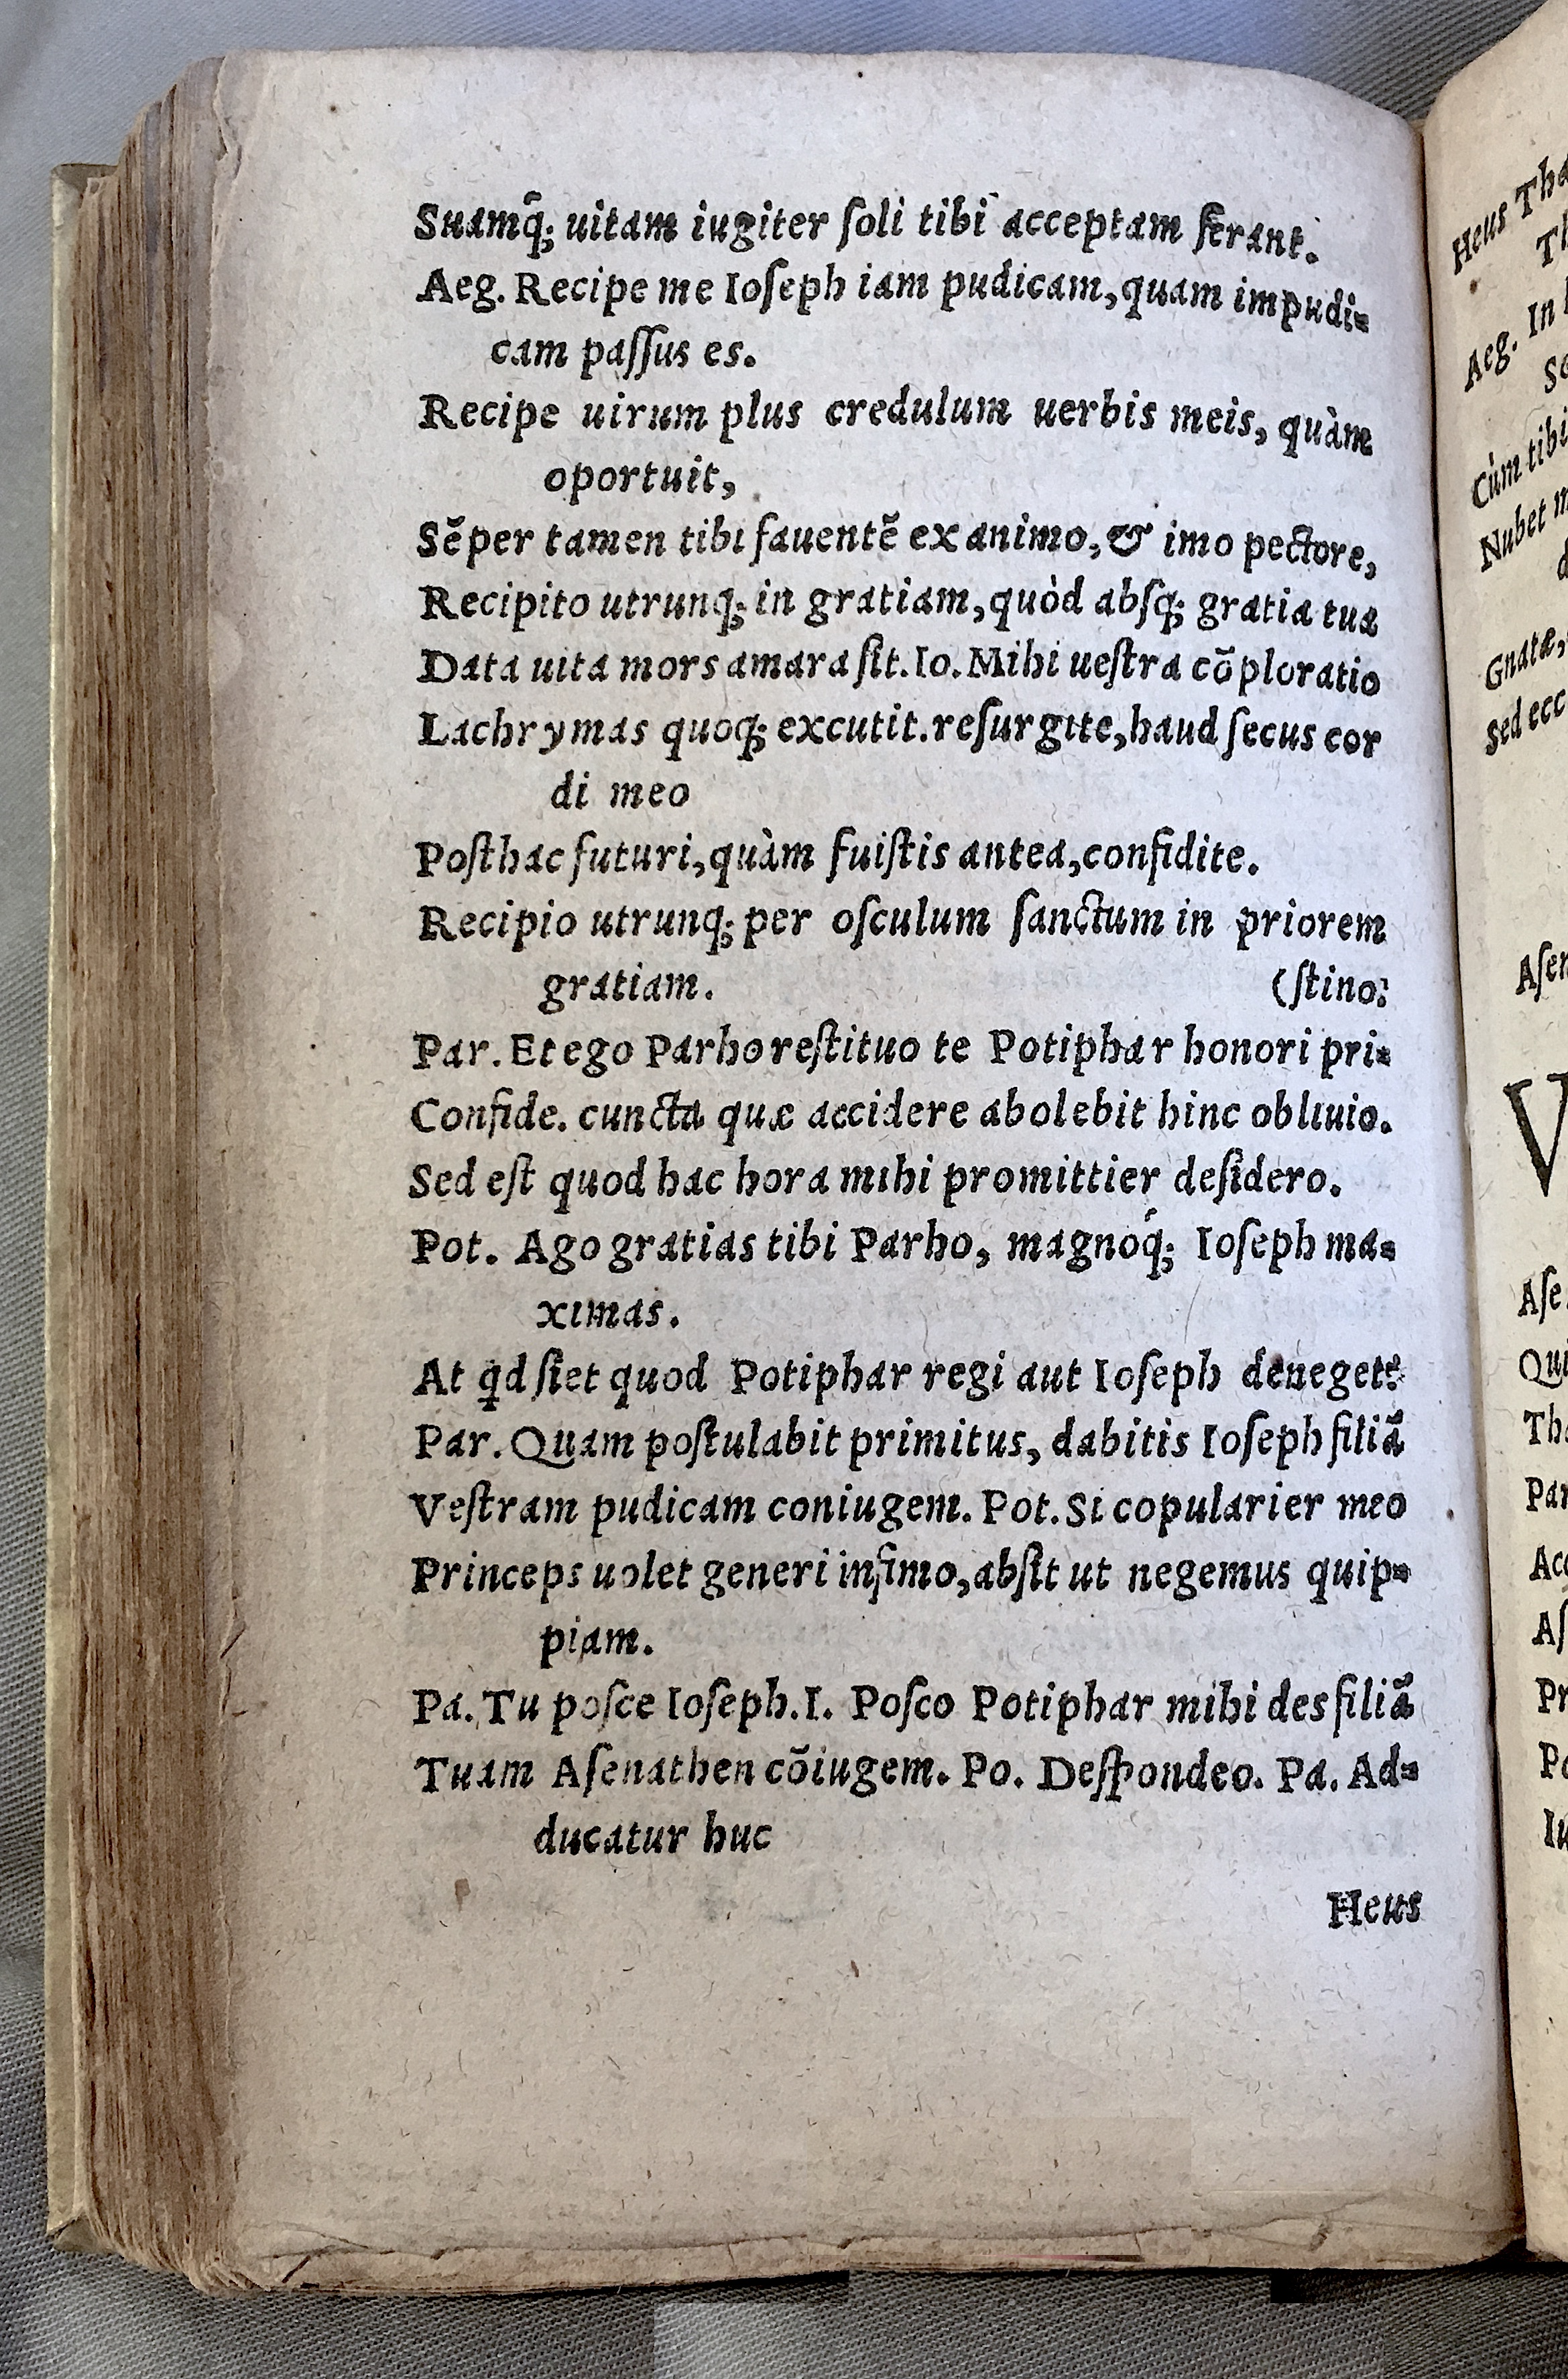 Suamq̃; uitam iugiter ſoli tibi acceptam ferant.
Aeg. Recipe me Ioſeph iam pudicam, quam impudi=
cam paſſus es.
Recipe uirum plus credulum uerbis meis, quàm
oportuit,
Sẽper tamen tibi fauentẽ ex animo, & imo pectore,
Recipito utrunq; in gratiam, quòd abſq; gratia tua
Data uita mors amara ſit. Io. Mihi ueſtra cõploratio
Lachrymas quoq; excutit. reſurgite, haud ſecus cor
di meo
Poſthac futuri, quàm fuiſtis antea, confidite.
Recipio utrunq; per oſculum ſanctum in priorem
gratiam. (ſtino:
Par. Et ego Parho reſtituo te Potiphar honori pri=
Confide. cuncta quæ accidere abolebit hinc obliuio.
Sed eſt quod hac hora mihi promittier deſidero.
Pot. Ago gratias tibi Parho, magnoq́; Ioſeph ma=
ximas.
At qd ſiet quod Potiphar regi aut Ioſeph deneget?
Par. Quam poſtulabit primitus, dabitis Ioſeph filiã
Veſtram pudicam coniugem. Pot. Si copularier meo
Princeps uolet generi infimo, abſit ut negemus quip=
piam.
Pa. Tu poſce Ioſeph. I. Poſco Potiphar mihi des filiã
Tuam Aſenathen cõiugem. Po. Deſpondeo. Pa. Ad=
ducatur huc
Heus
Heus
Aeg. In
Cùm tibi
Nubet
Gnatæ,
Sed ecc
V
Aſe
Qu
Par